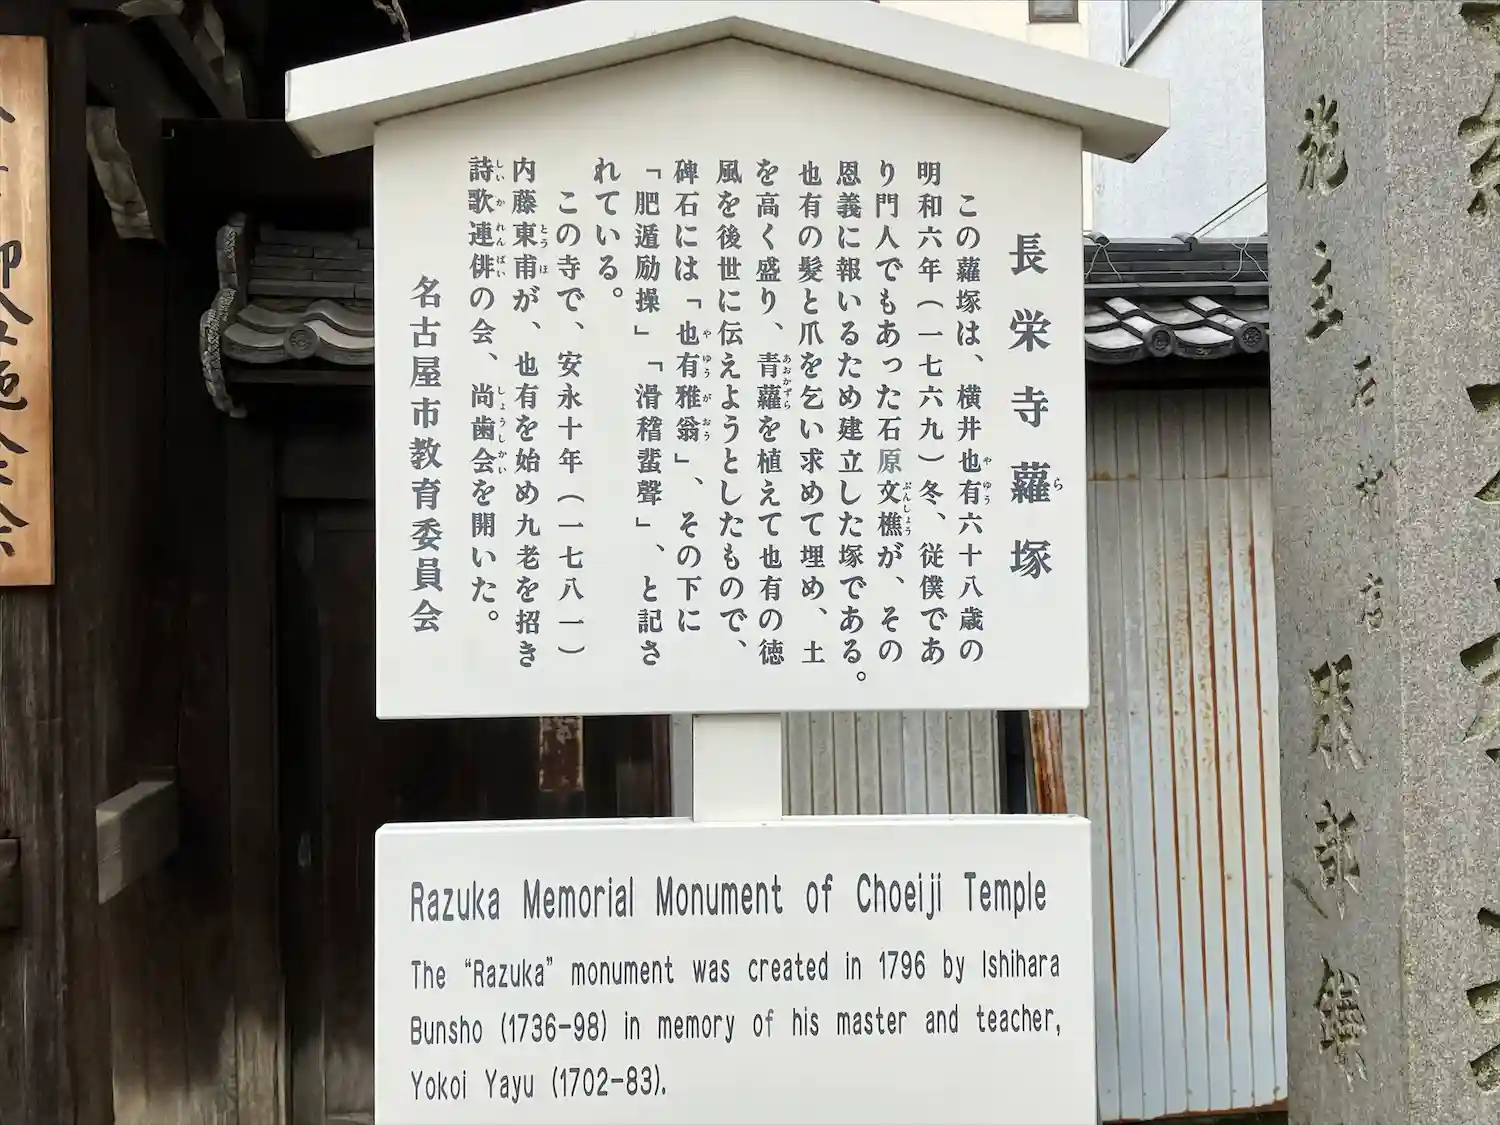 長栄寺蘿塚
ら
この蘿塚は、横井也有六十八歳の
やゆう
明和六年(一七六九)冬、従僕であ
り門人でもあった石原文樵が、その
ぶんしょう
恩義に報いるため建立した塚である。
也有の髪と爪を乞い求めて埋め、土
を高く盛り、青蘿を植えて也有の徳
あおかずら
風を後世に伝えようとしたもので、
碑石には「也有雅翁」、その下に
やゆうがおう
「肥遁励操」「滑稽蜚聲」、と記さ
れている。
この寺で、安永十年(一七八一)
内藤東甫が、也有を始め九老を招き
とうほ
詩歌連俳の会、尚歯会を開いた。
しいかれんぱい
しょうしかい
名古屋市教育委員会
Razuka Memorial Monument of Choeiji Temple
The “Razuka” monument was created in 1796 by Ishihara
Bunsho (1736-98) in memory of his master and teacher,
Yokoi Yayu (1702-83).
施主